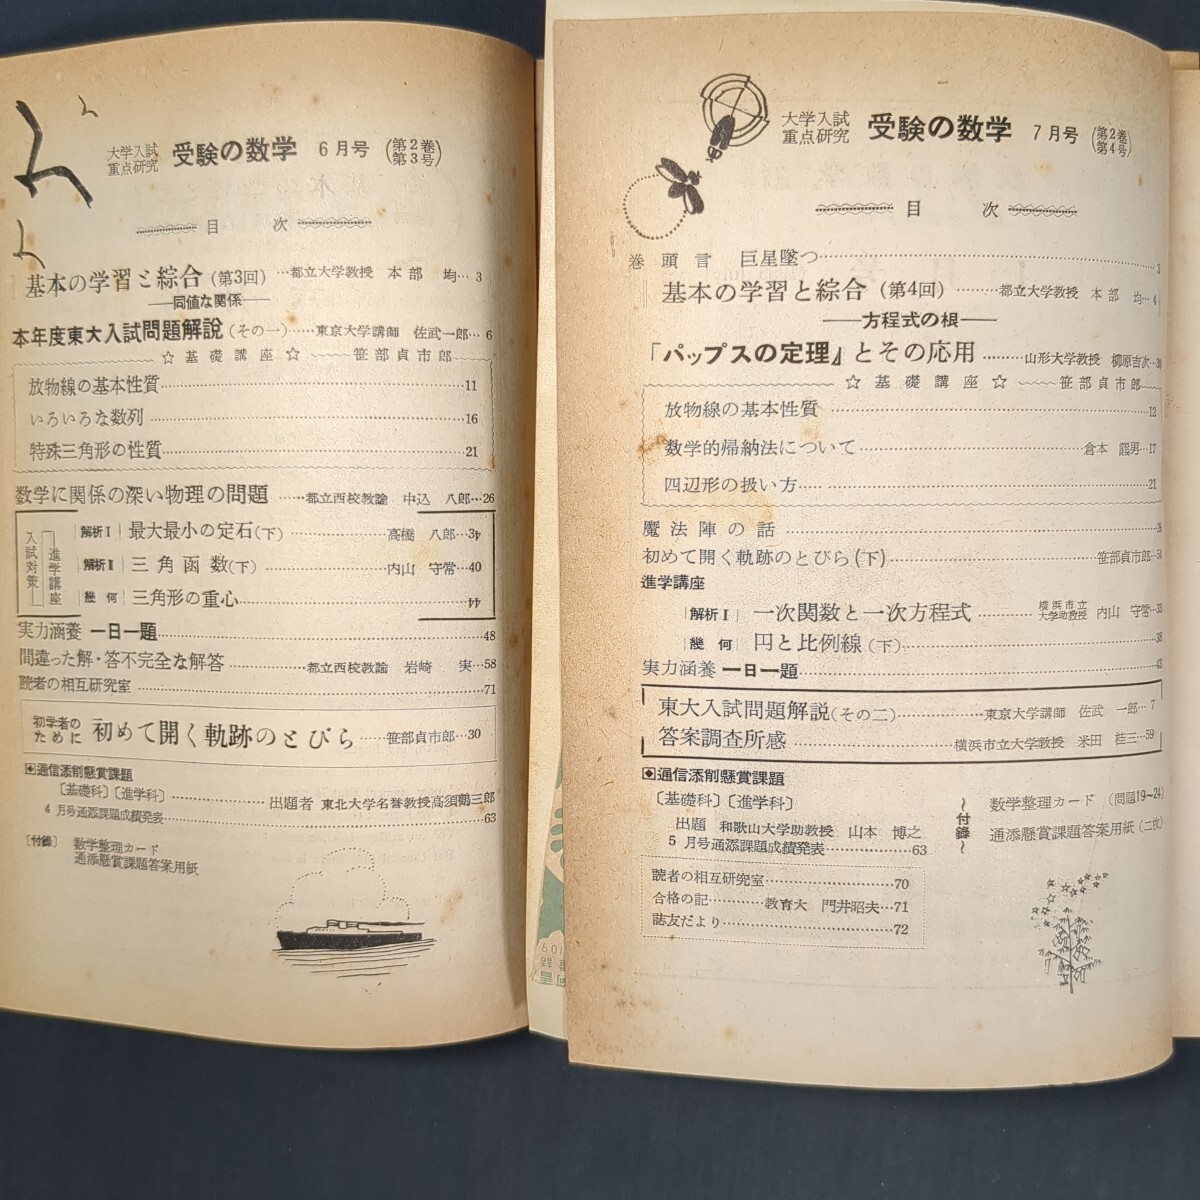 大学入試
重点研究 受験の数学 6月号 (第2巻 第3号)
目 次
基本の学習と綜合 (第3回) …都立大学教授 本部 均…3
──同値な関係──
本年度東大入試問題解説 (その一)……東京大学講師 佐武一郎…6
☆基礎講座☆ 笹部貞市郎
放物線の基本性質……11
いろいろな数列……16
特殊三角形の性質……21
数学に関係の深い物理の問題……都立西校教諭 中込 八郎…26
入試対策 進学講座
解析Ⅰ 最大最小の定石(下)……高橋 八郎…34
解析Ⅱ 三角函数(下)……内山 守常…40
幾何 三角形の重心……44
実力涵養 一日一題……48
間違った解・答不完全な解答……都立西校教諭 岩崎 実…58
読者の相互研究室……71
初学者の
ために 初めて開く軌跡のとびら……笹部貞市郎…30
通信添削懸賞課題
〔基礎科〕〔進学科〕……出題者 東北大学名誉教授高須鶴三郎
4月号通添課題成績発表……63
〔付録〕 数学整理カード
通添懸賞課題答案用紙
大学入試
重点研究 受験の数学 7月号 (第2巻 第4号)
目 次
巻頭言 巨星墜つ……3
基本の学習と綜合 (第4回)……都立大学教授 本部 均…4
──方程式の根──
『パップスの定理』とその応用……山形大学教授 柳原吉次
☆基礎講座☆ 笹部貞市郎
放物線の基本性質……12
数学的帰納法について……倉本 龍男…17
四辺形の扱い方……21
魔法陣の話……
初めて開く軌跡のとびら(下)……笹部貞市郎
進学講座
解析Ⅰ 一次関数と一次方程式……横浜市立大学助教授 内山 守常
幾何 円と比例線(下)……38
実力涵養 一日一題……43
東大入試問題解説(その二)……東京大学講師 佐武 一郎…7
答案調査所感……横浜市立大学教授 米田 桂三…59
通信添削懸賞課題
〔基礎科〕〔進学科〕
出題 和歌山大学助教授 山本 博之
5月号通添課題成績発表……63
〜付録〜
数学整理カード (問題19〜24)
通添懸賞課題答案用紙(二枚)
読者の相互研究室……70
合格の記……教育大 門井昭夫…71
誌友だより……72